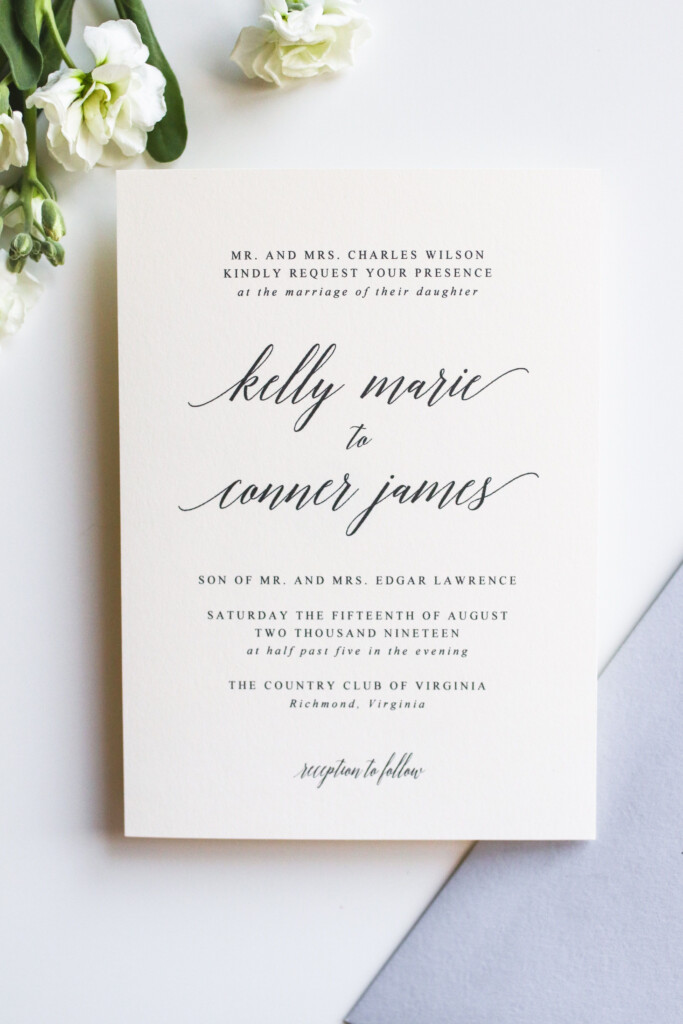 MR. AND MRS. CHARLES WILSON
KINDLY REQUEST YOUR PRESENCE
at the marriage of their daughter
kelly marie
to
conner james
SON OF MR. AND MRS. EDGAR LAWRENCE
SATURDAY THE FIFTEENTH OF AUGUST
TWO THOUSAND NINETEEN
at half past five in the evening
THE COUNTRY CLUB OF VIRGINIA
Richmond, Virginia
reception to follow